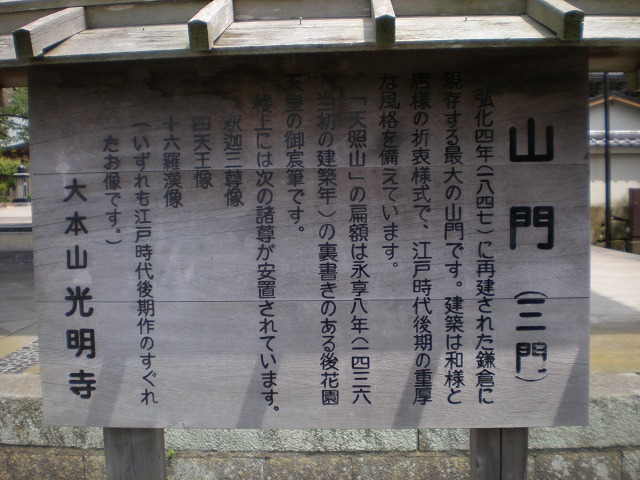 山門(三門)
弘化四年(一八四七)に再建された鎌倉に
現存する最大の山門です。建築は和様と
唐様の折衷様式で、江戸時代後期の重厚
な風格を備えています。
「天照山」の扁額は永享八年(一四三六
当初の建築年)の裏書きのある後花園
天皇の御宸筆です。
楼上には次の諸尊が安置されています。
釈迦三尊像
四天王像
十六羅漢像
(いずれも江戸時代後期作のすぐれ
たお像です。)
大本山光明寺